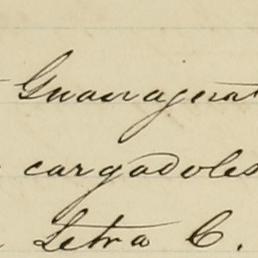 Guanajuat
cargadoles
Letra C.